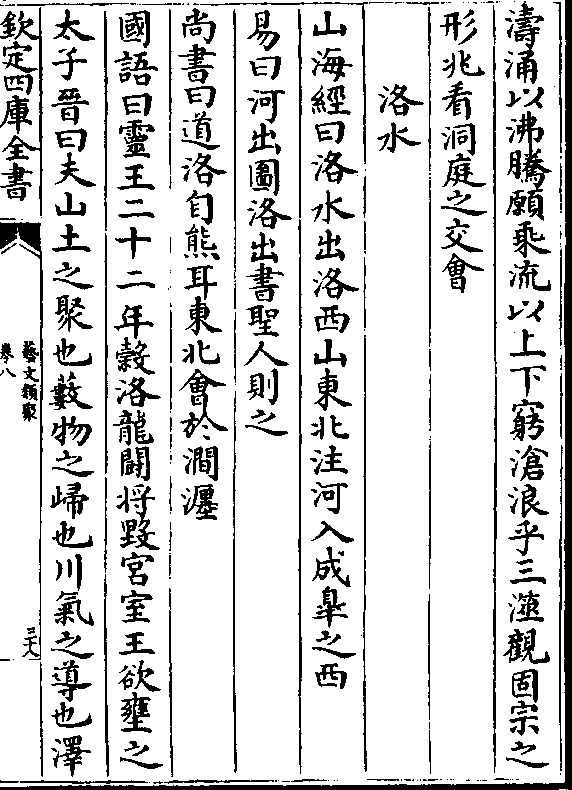 濤涌以沸騰願乘流以上下窮滄浪乎三澨觀固宗之
形兆看洞庭之交會
洛水
山海經曰洛水出洛西山東北注河入成臯之西
易曰河出圖洛出書聖人則之
尚書曰道洛自熊耳東北會於澗瀍
國語曰靈王二十二年穀洛龍鬬將毀宮室王欲壅之
太子晉曰夫山土之聚也藪物之歸也川氣之導也澤
欽定四庫全書
藝文類聚
卷八
三十八